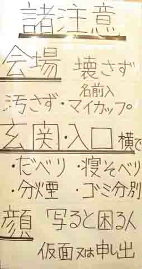 諸注意
会場 壊さず
汚さず・名前入マイカップ
玄関・入口横で
・だべり ・寝そべり
・分火煙 ・ゴミ分別
顔 「写ると困る人
仮面又は申し出